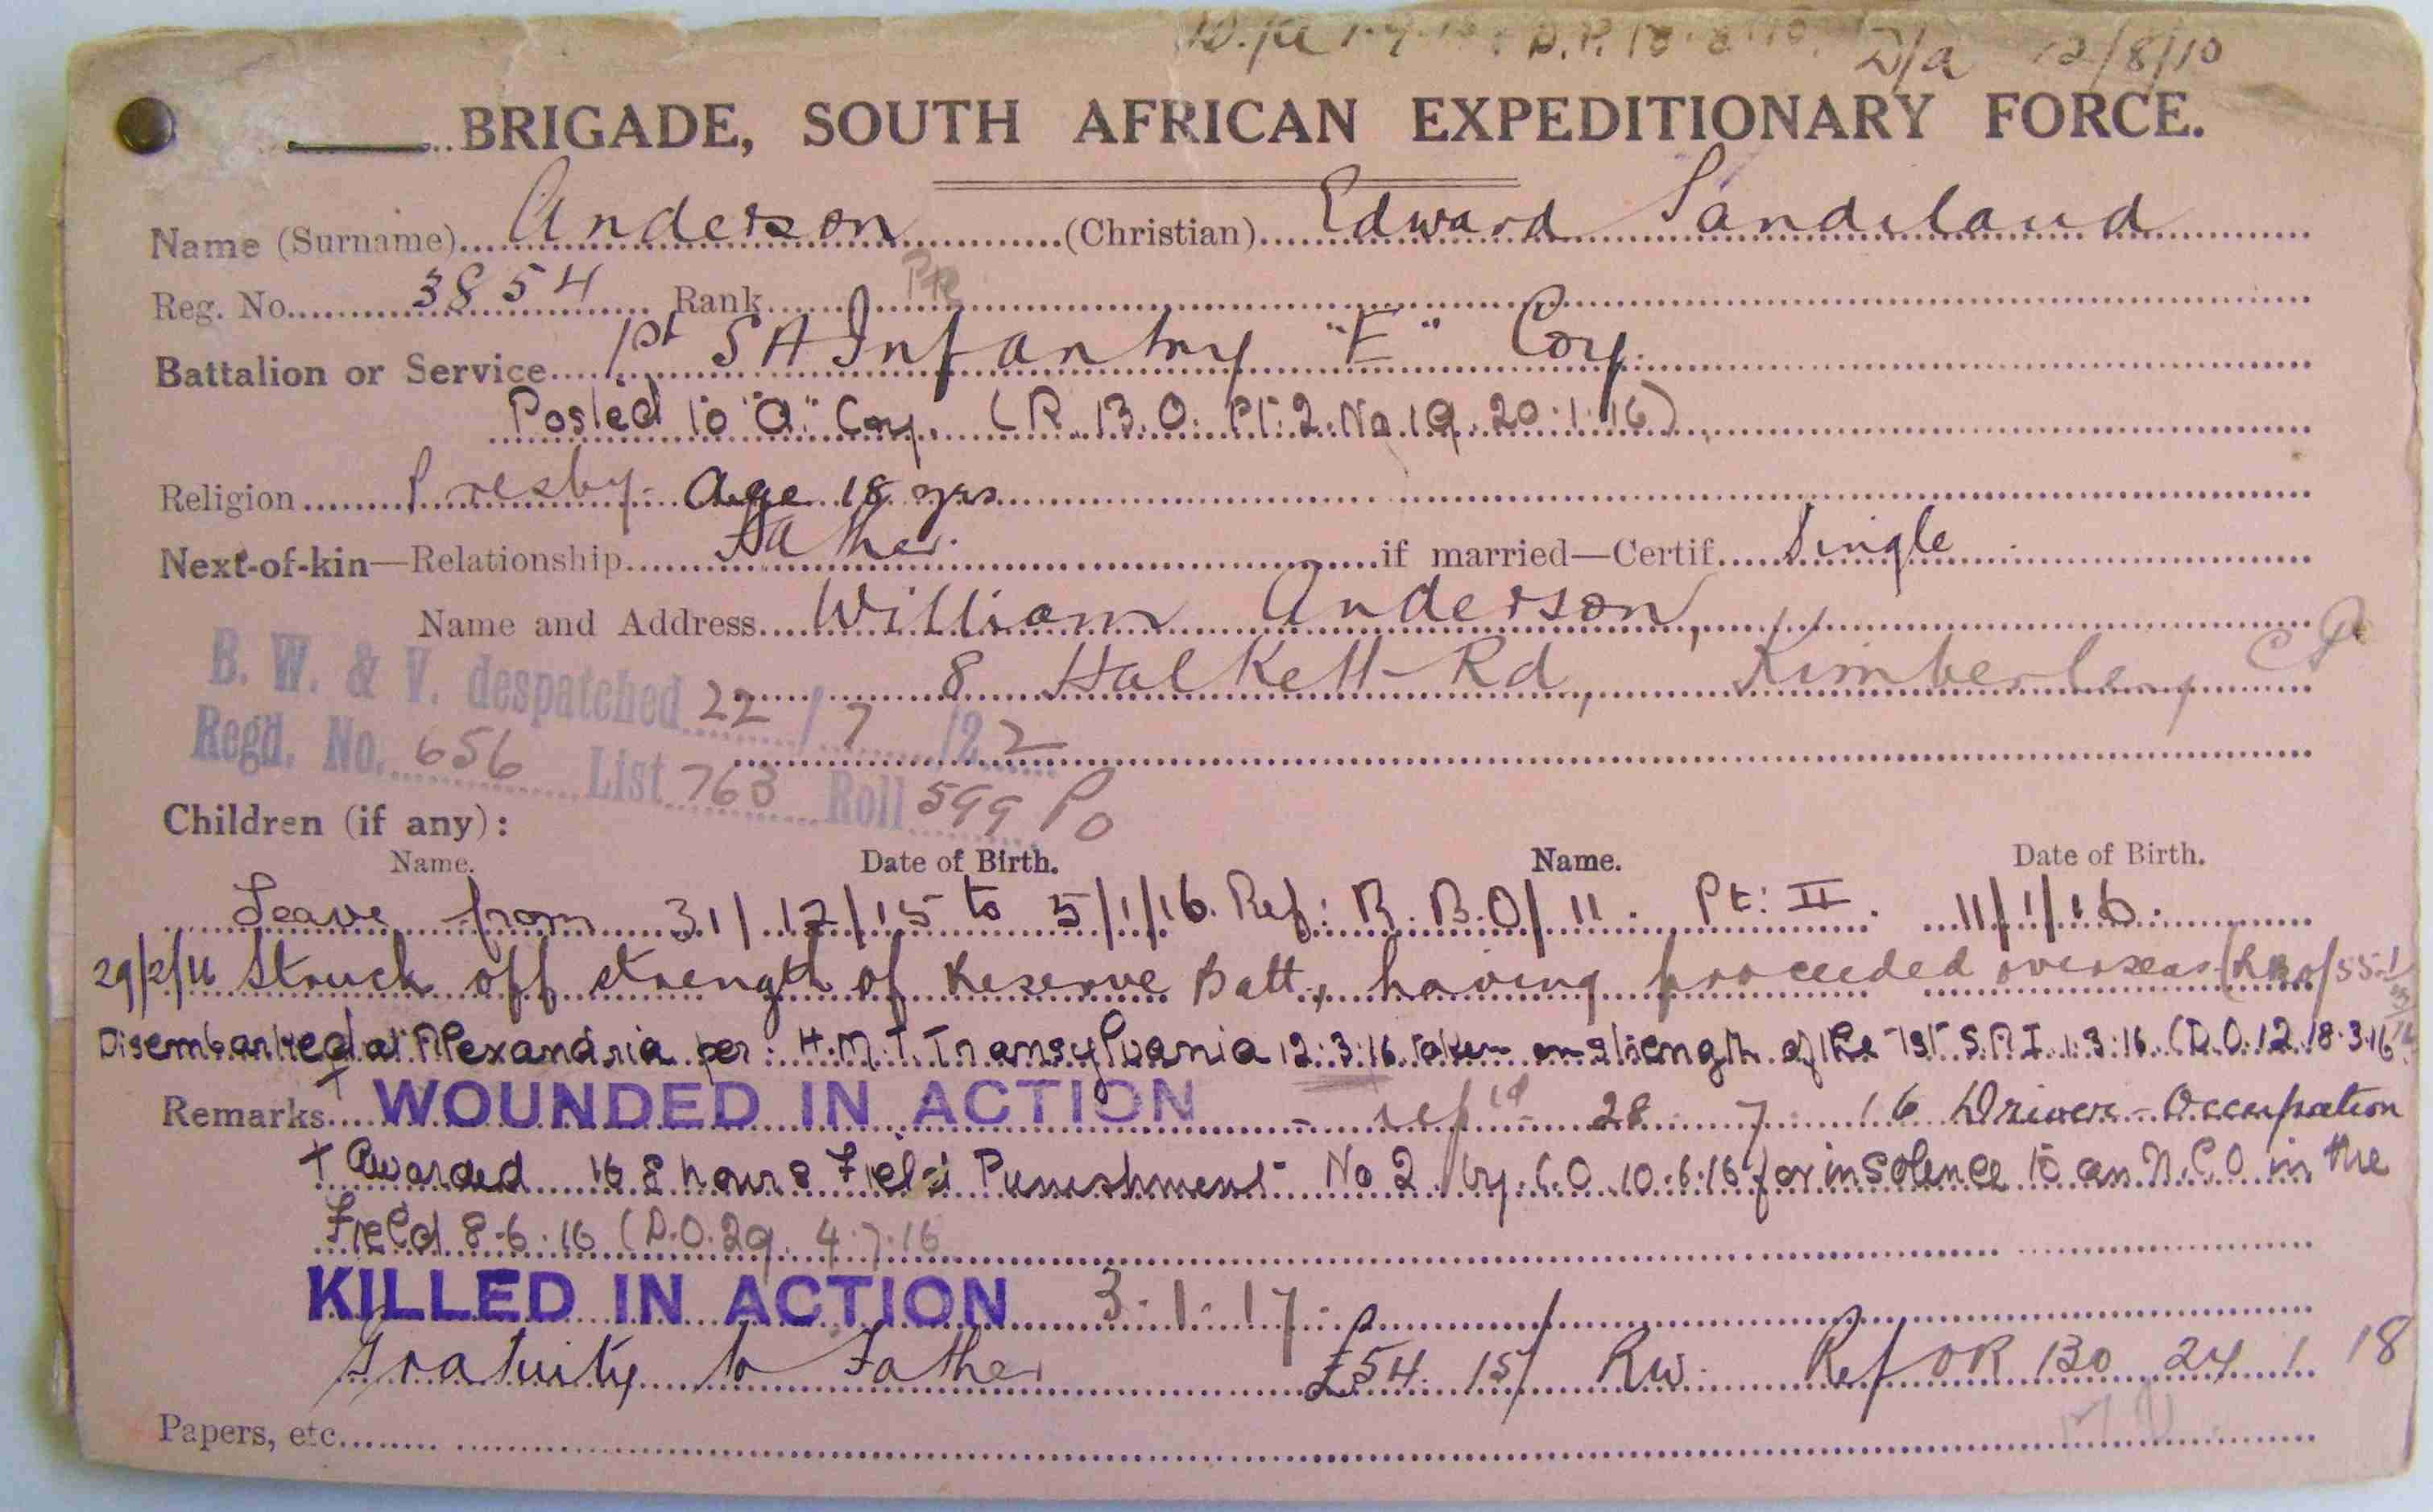 D/a 12/8/10
BRIGADE, SOUTH AFRICAN EXPEDITIONARY FORCE.
Name (Surname) Anderson (Christian) Edward Sandiland
Reg. No. 3854 Rank Pte
Battalion or Service 1st S A Infantry "E" Coy.
Posted to "A" Coy. (R.B.O. Pt. 2. No 19. 20.1.16)
Religion Presby. Age 18 yrs
Next-of-kin—Relationship Father. if married—Certif. Single
Name and Address William Anderson,
8 Halkett Rd, Kimberley C P
B. W. & V. despatched 22/7/22
Regd. No. 656 List 763 Roll 599 Po
Children (if any):
Name. Date of Birth. Name. Date of Birth.
Leave from 31/12/15 to 5/1/16. Ref: R.B.O/11. Pt: II. 11/1/16.
29/2/16 Struck off strength of Reserve Batt, having proceeded overseas (RBO/55
Disembarked at Alexandria per: H.M.T. Transylvania 12.3.16 taken on strength of the 1st S.A.I. 1.3.16. (D.O.12.18.3.16
Remarks + WOUNDED IN ACTION - 28.7.16 Driver - Occupation
+ Awarded 168 hours Field Punishment No 2 by C.O. 10.6.16 for insolence to an N.C.O in the
Field 8.6.16 (D.O.29. 4.7.16
KILLED IN ACTION 3.1.17.
Gratuity to Father £54.15/ Rw. Ref OR 130 24 1 18
Papers, etc.